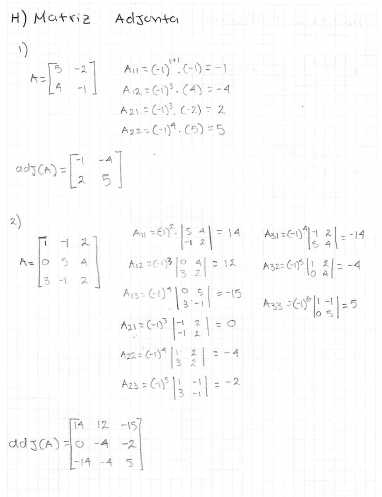 H) Matriz Adjunta
1)
A = [5 -2; 4 -1]
A11 = (-1)^1+1 · (-1) = -1
A12 = (-1)^3 · (4) = -4
A21 = (-1)^3 · (-2) = 2
A22 = (-1)^4 · (5) = 5
adj(A) = [-1 -4; 2 5]
2)
A = [1 -1 2; 0 5 4; 3 -1 2]
A11 = (-1)^2 · |5 4; -1 2| = 14
A12 = (-1)^3 |0 4; 3 2| = 12
A13 = (-1)^4 |0 5; 3 -1| = -15
A21 = (-1)^3 |-1 2; -1 2| = 0
A22 = (-1)^4 |1 2; 3 2| = -4
A23 = (-1)^5 |1 -1; 3 -1| = -2
A31 = (-1)^4 |-1 2; 5 4| = -14
A32 = (-1)^5 |1 2; 0 4| = -4
A33 = (-1)^6 |1 -1; 0 5| = 5
adj(A) = [14 12 -15; 0 -4 -2; -14 -4 5]